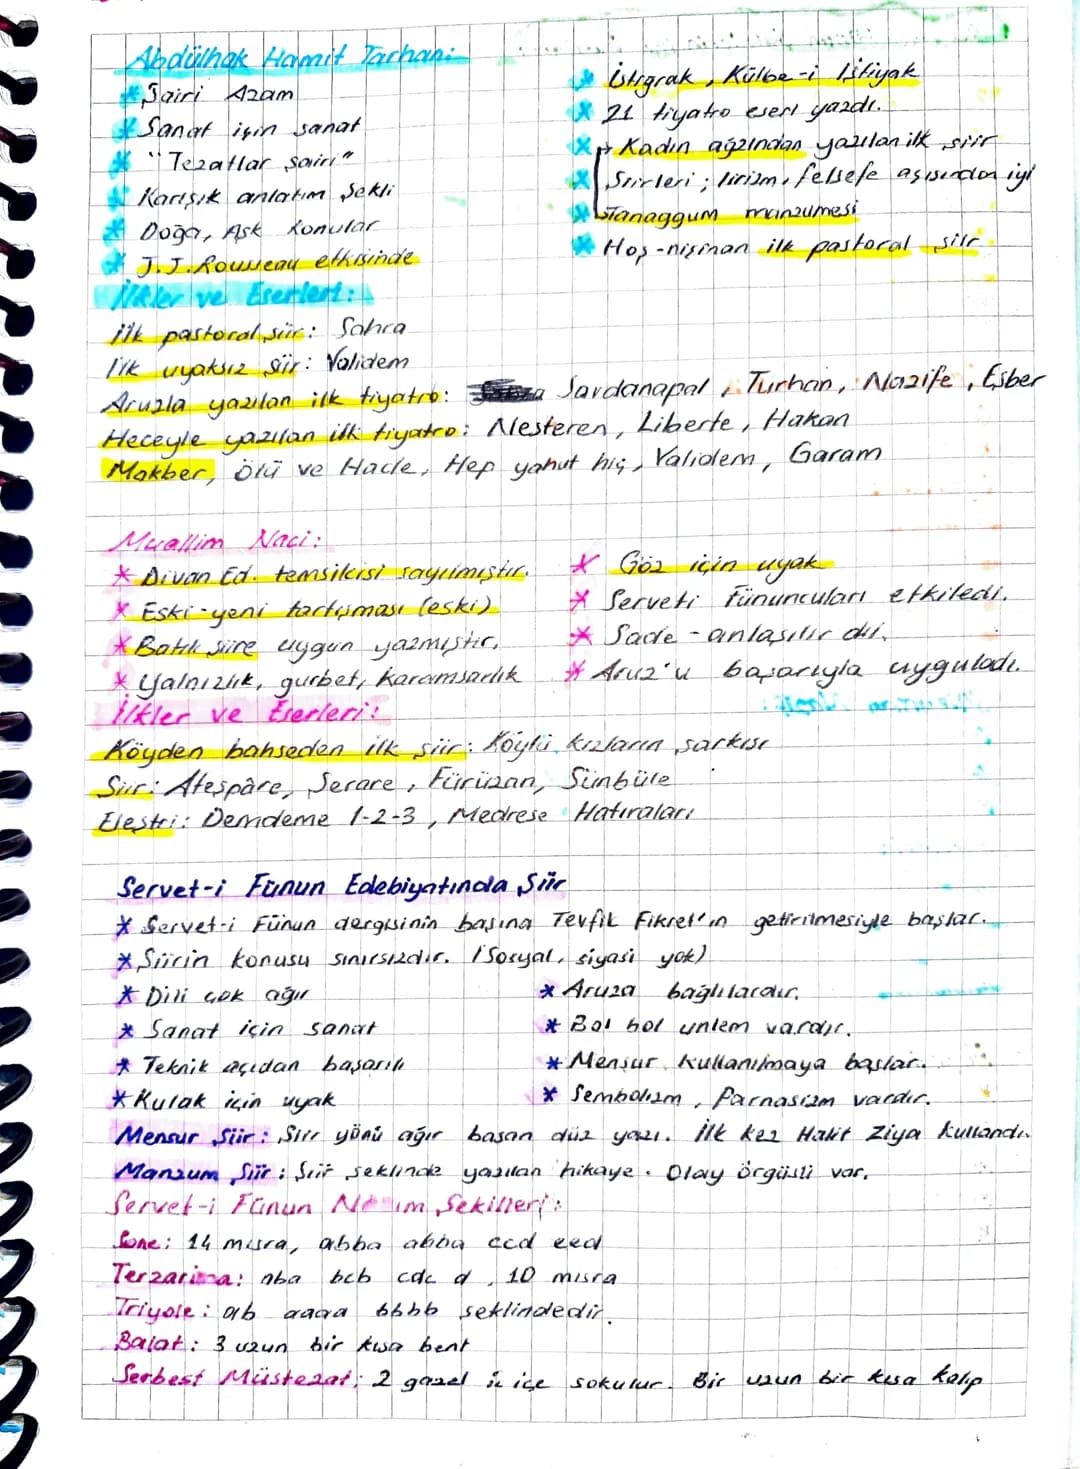 Abdülhak Hamit Tarhan:
* Şairi Azam
* Sanat için sanat
* "Tezatlar şairi"
* Karışık anlatım şekli
* Doğa, Aşk konular
* J.J.Rousseau etkisinde
* İstigrak, Külbe-i İştiyak
* 21 tiyatro eseri yazdı.
* Kadın ağzından yazılan ilk şiir
* Şiirleri; lirizm, felsefe açısından iyi
* Tanaggum manzumesi
* Hoş-nişinan ilk pastoral şiir
İlkler ve Eserleri:
İlk pastoral şiir: Sahra
İlk uyaksız şiir: Validem
Aruzla yazılan ilk tiyatro: Sardanapal, Turhan, Nazife, Eşber
Heceyle yazılan ilk tiyatro: Nesteren, Liberte, Hakan
Makber, Ölü ve Hacle, Hep yahut hiç, Validem, Garam
Muallim Naci:
* Divan Ed. temsilcisi sayılmıştır.
* Eski-yeni tartışması (eski)
* Batılı şiire uygun yazmıştır.
* Yalnızlık, gurbet, karamsarlık
* Göz için uyak
* Serveti Fünuncuları etkiledi.
* Sade-anlaşılır dil.
* Aruz'u başarıyla uyguladı.
İlkler ve Eserleri:
Köyden bahseden ilk şiir: Köylü kızların şarkısı
Şiir: Ateşpâre, Şerare, Fürüzan, Sünbüle
Eleştri: Demdeme 1-2-3, Medrese Hatıraları
Servet-i Fünun Edebiyatında Şiir
* Servet-i Fünun dergisinin başına Tevfik Fikret'in getirilmesiyle başlar.
* Şiirin konusu sınırsızdır. (Sosyal, siyasi yok)
* Dili çok ağır
* Sanat için sanat
* Teknik açıdan başarılı
* Kulak için uyak
* Aruza bağlılardır.
* Bol bol ünlem vardır.
* Mensur kullanılmaya başlar.
* Sembolizm, Parnasizm vardır.
Mensur Şiir: Şiir yönü ağır basan düz yazı. İlk kez Halit Ziya kullandı.
Manzum Şiir: Şiir şeklinde yazılan hikaye. Olay örgüsü var.
Servet-i Fünun Nazım Şekilleri:
Sone: 14 mısra, abba abba ccd eed
Terzarima: aba bcb cdc d, 10 mısra
Triyole: ab aaaa bbbb şeklindedir.
Balat: 3 uzun bir kısa bent
Serbest Müstezat; 2 gazel iç içe sokulur. Bir uzun bir kısa kalıp